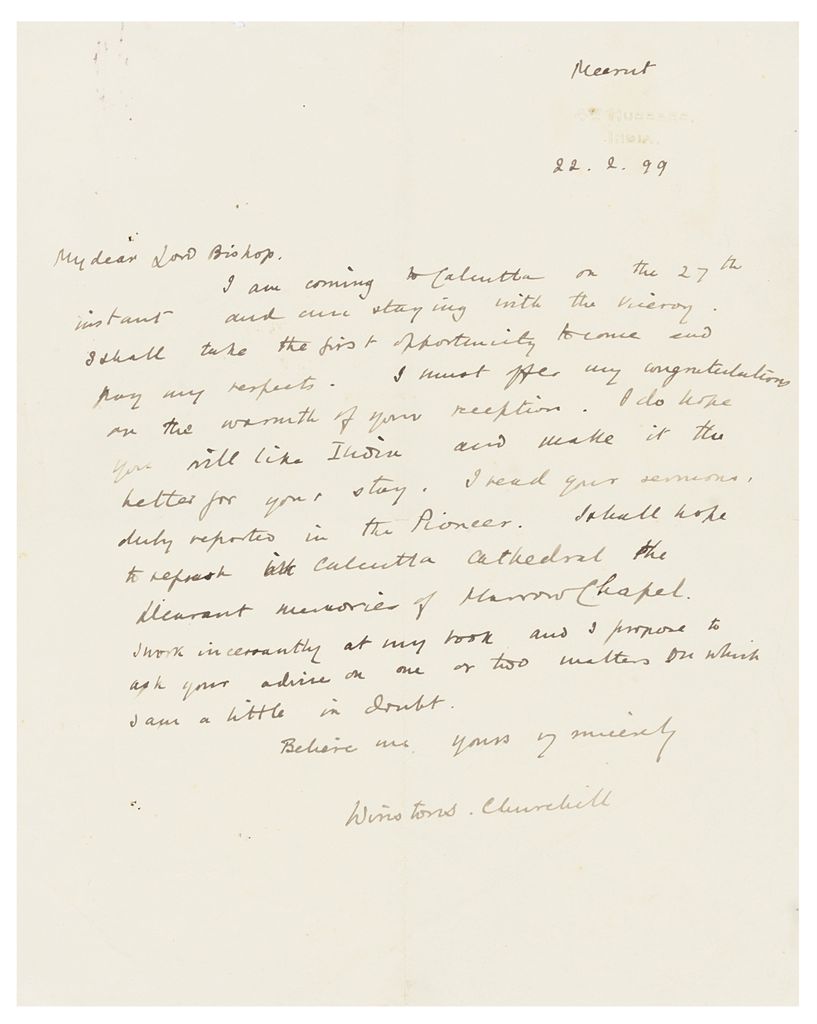 Meerut
4th Hussars.
India.
22. 2. 99
My dear Lord Bishop.
I am coming to Calcutta on the 27th
instant and am staying with the Viceroy.
I shall take the first opportunity to come and
pay my respects. I must offer my congratulations
on the warmth of your reception. I do hope
you will like India and make it the
better for your stay. I read your sermons,
duly reported in the Pioneer. I shall hope
to refresh in Calcutta Cathedral the
pleasant memories of Harrow Chapel.
I work incessantly at my book and I propose to
ask your advice on one or two matters on which
I am a little in doubt.
Believe me yours sincerely
Winston S. Churchill